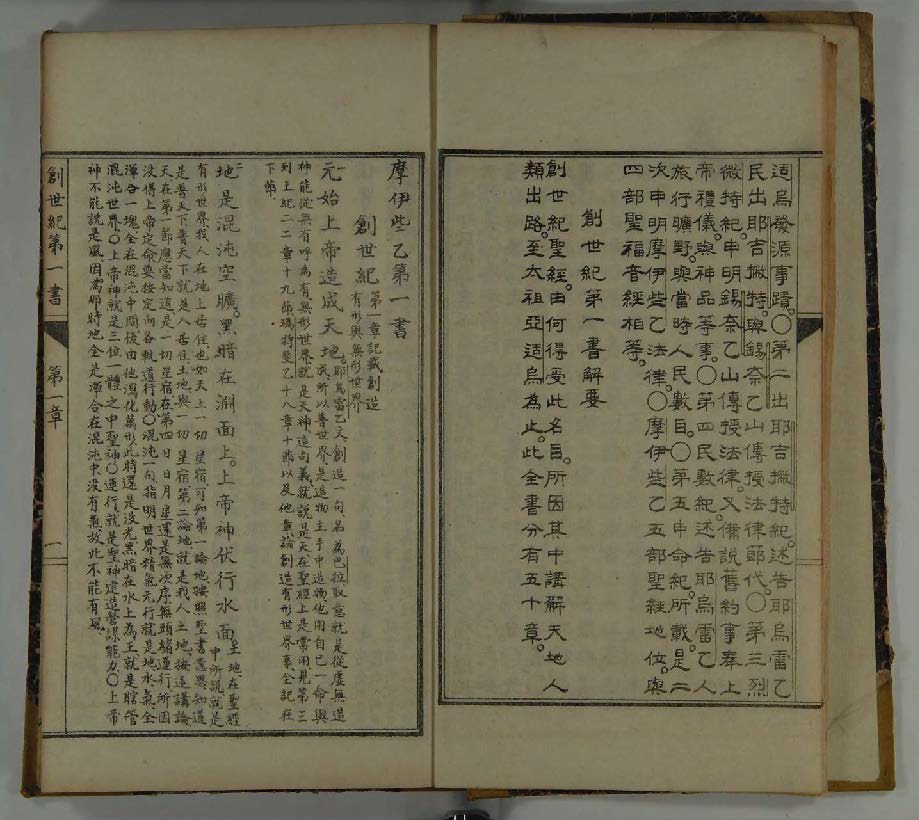 适烏發源事蹟。〇第二出耶吉撇特紀。述告耶烏雷乙
民出耶吉撇特。與錫奈乙山傳授法律節代。〇第三烈
微特紀。申明錫奈乙山傳授法律。又備說舊約事奉上
帝禮儀。與神品等事。〇第四民數紀。述告耶烏雷乙人
旅行曠野。與當時人民數目。〇第五申命紀。所載。是二
次申明摩伊些乙法律。〇摩伊些乙五部聖經地位。與
四部聖福音經相等。
創世紀第一書解要
創世紀聖經。由何得受此名目。所因其中講解天地人
類出路。至太祖亞适烏為止。此全書分有五十章。
摩伊些乙第一書
創世紀 第一章記載創造有形與無形世界
元始上帝造成天地。耶烏雷乙文創造一句。名為巴拉取意就是從虛無造
成。所以普世界是造物主手中造物。他用自己一命與
神能從無有呼為有。無形世界就是天神。這句義就說是天在聖經上是常用。見第三
列王紀二二章十九節瑪特斐乙十八章十節以及他章論創造有形世界事。全記在
下篇。
地是混沌空曠。黑暗在淵面上。上帝神伏行水面。至地。在聖經
中所說就是
有形世界。我人在地上居住也。如天上一切星宿。可知第一論地。按照聖書意思。知道
是普天下。普天下就是人居住土地。與一切星宿。第二論地就是我人土地。接連講論
天在第一節應當知道是一切星宿在第四日日月星還是無次序無頭緒運行。所因
沒得上帝定命要按定向各軌道行動〇混沌一句指明世界精氣元行就是地水氣全
渾合一塊全在混沌中間後由他瀉化萬形此時還是沒光黑暗在水上為王就是轄管
混沌世界〇上帝神就是三位一體之中聖神〇運行。就是聖神建造營謀能力〇上帝
神不能說是風。因為那時地全是渾合在混沌中沒有氣。故此不能有風。
創世紀第一書
第一章
一